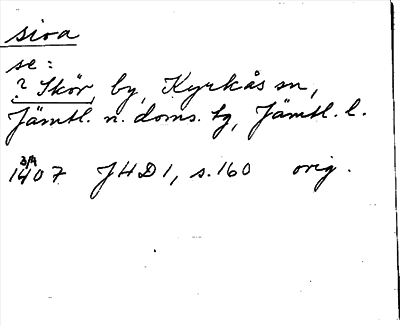 siva
se:
? Skör, by, Kyrkås sn,
Jämtl. n. doms. tg, Jämtl. l.
3/4
1407 JHD 1, s. 160 orig.